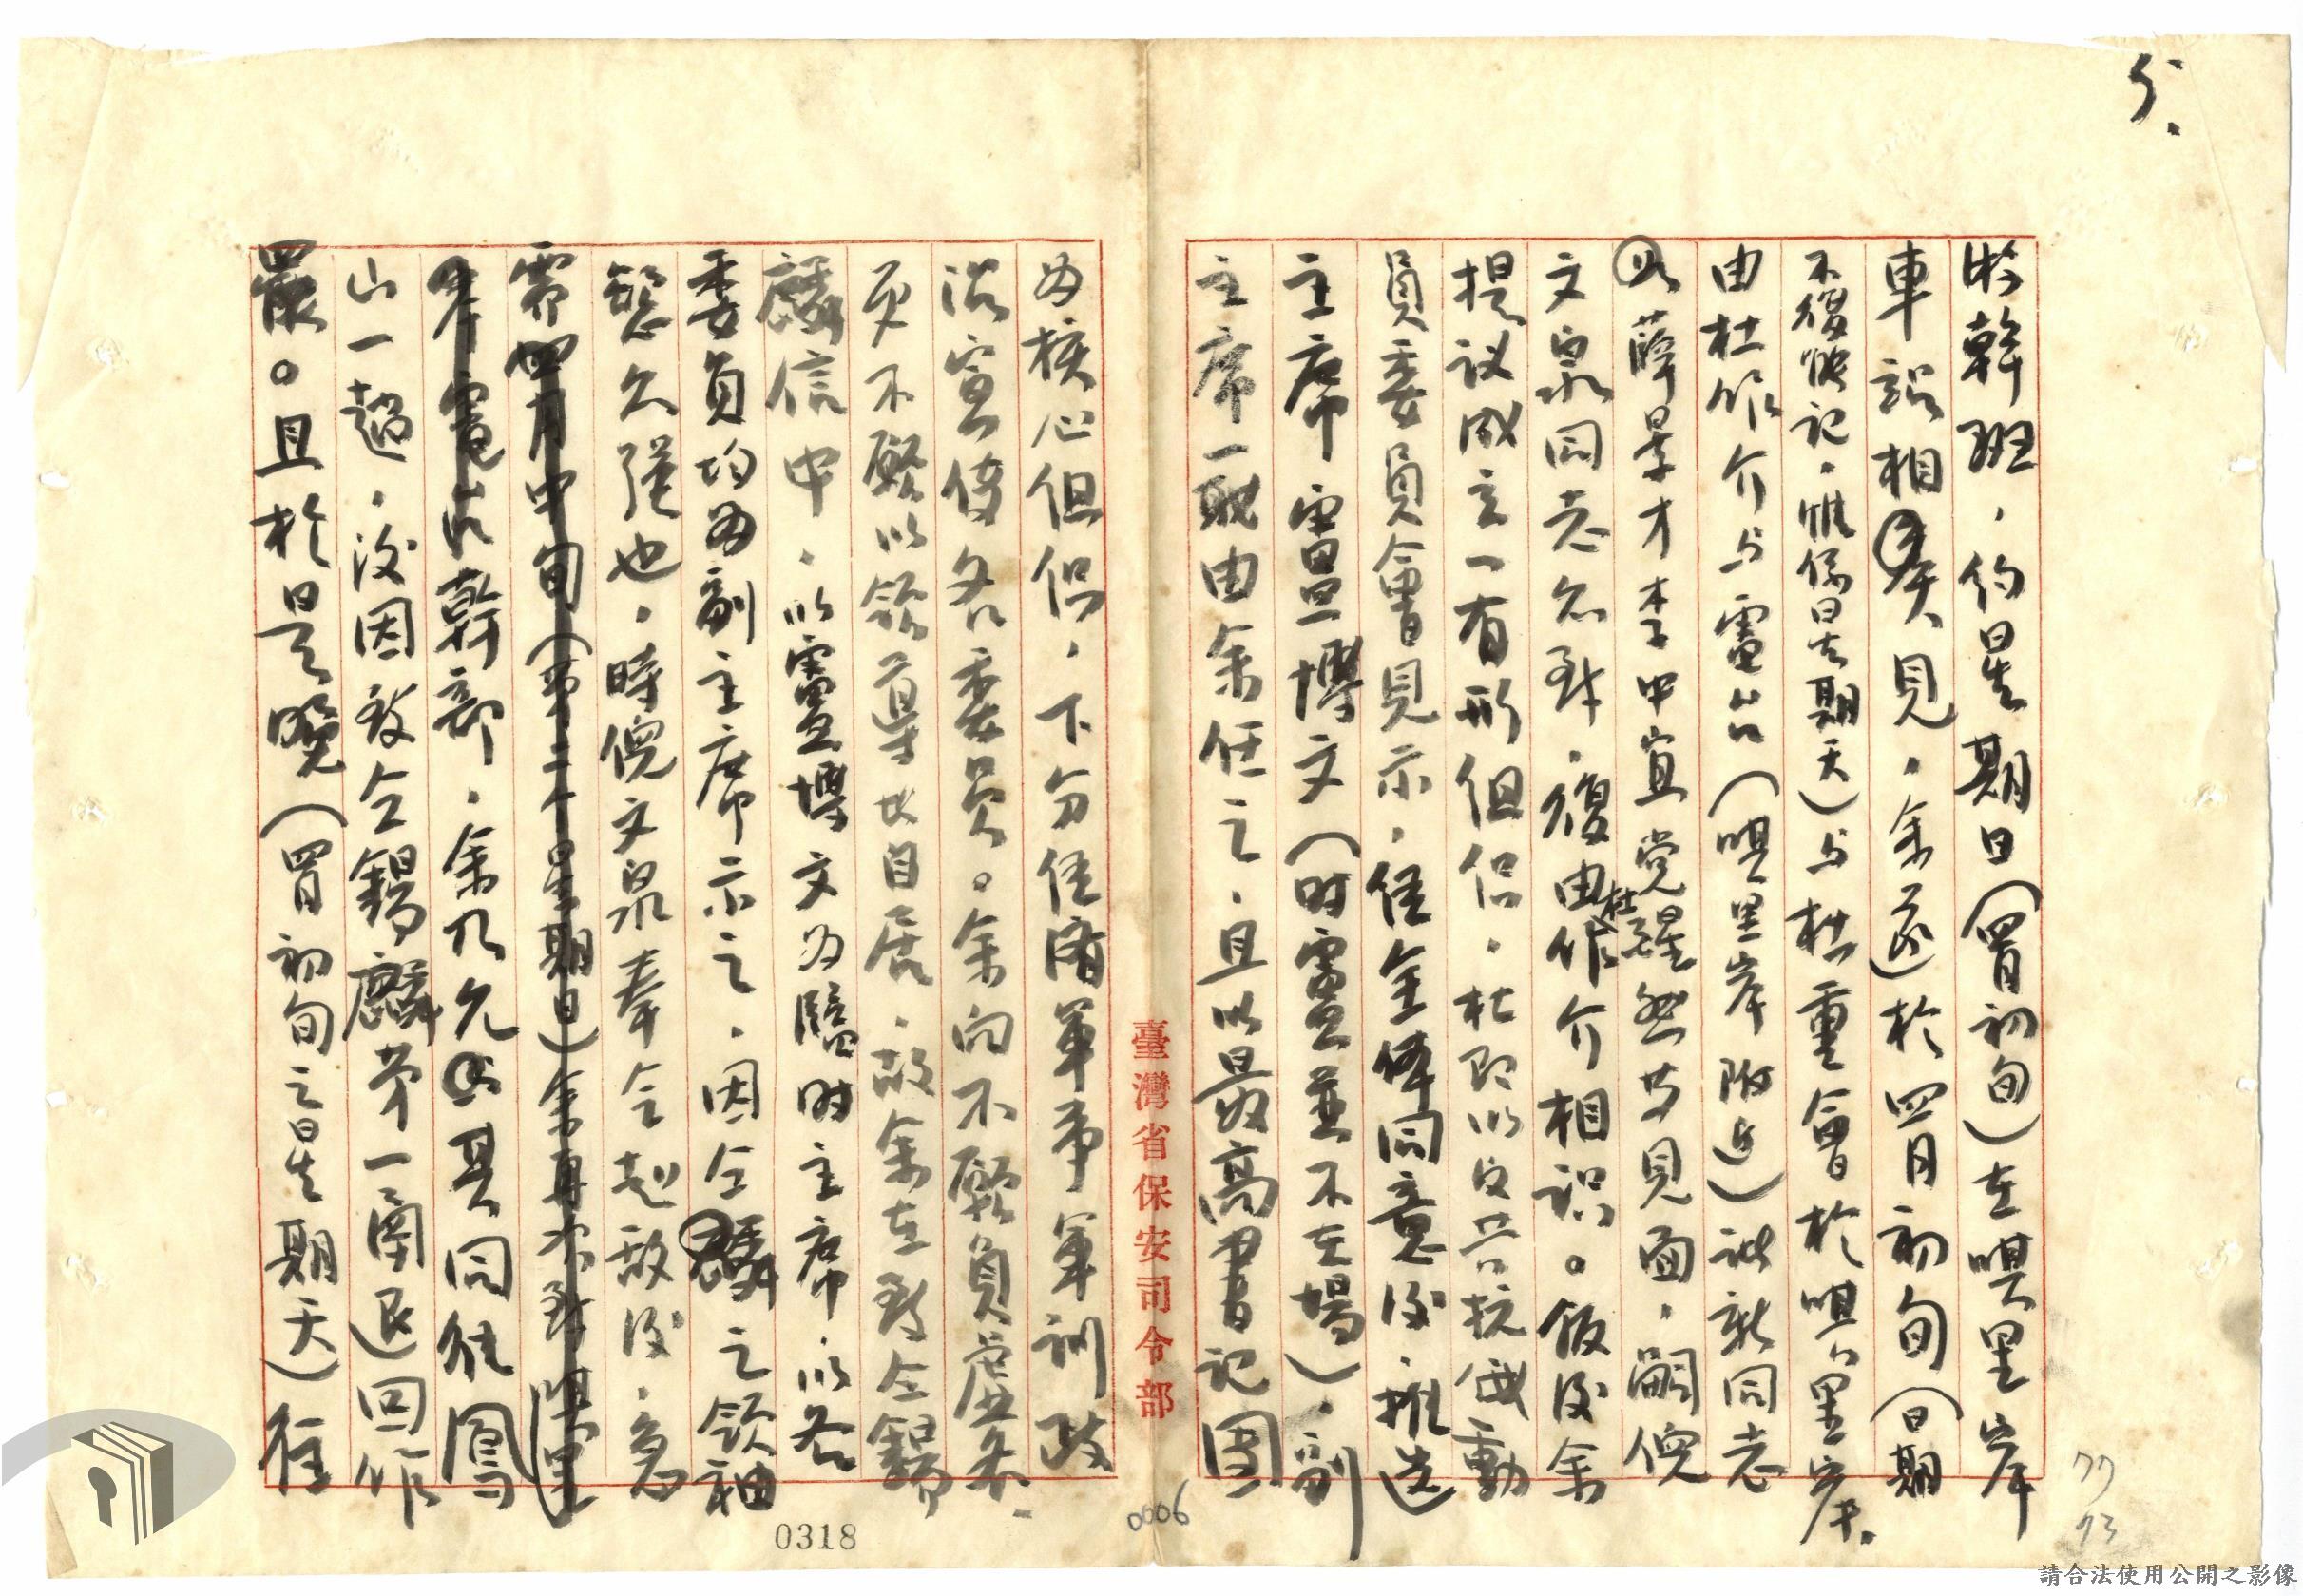 5.
於幹班，約星期日（四月初旬）在嗼里岸
車誤相失見，余返於四月初旬（日期
不復記，惟係星期天）与杜重會於唭里岸。
由杜作介与雷等（唭里岸附近）諸新同志
薛景才李中宜党醒然等見面，嗣倪
文泉同志亦到，復由杜作介相識。飯後余
提议成立一有形組織，杜即以反共抗俄動
員委員會見示，經全體同意後，推選
主席雷博文（时雷並不在場），副
主席一職由余任之，且以最高書記團
為核心組織，下分經濟軍事軍訓政
治宣傳各委員。余向不願負虛名，
更不願以領導者自居，故余在致仝錫
麟信中，以雷博文為臨时主席，以各
委員均為副主席示之，因仝錫麟之領袖
慾久强也，時倪文泉奉令赴敌後，急
需四月中旬（第二个星期日）余再次到唭里
岸 幹部，余乃允其同往鳳
山一趟，後因致仝錫麟第一函退回作
罷。且於是晚（四月初旬之星期天）往
臺灣省保安司令部
0006
0318
77
73
請合法使用公開之影像